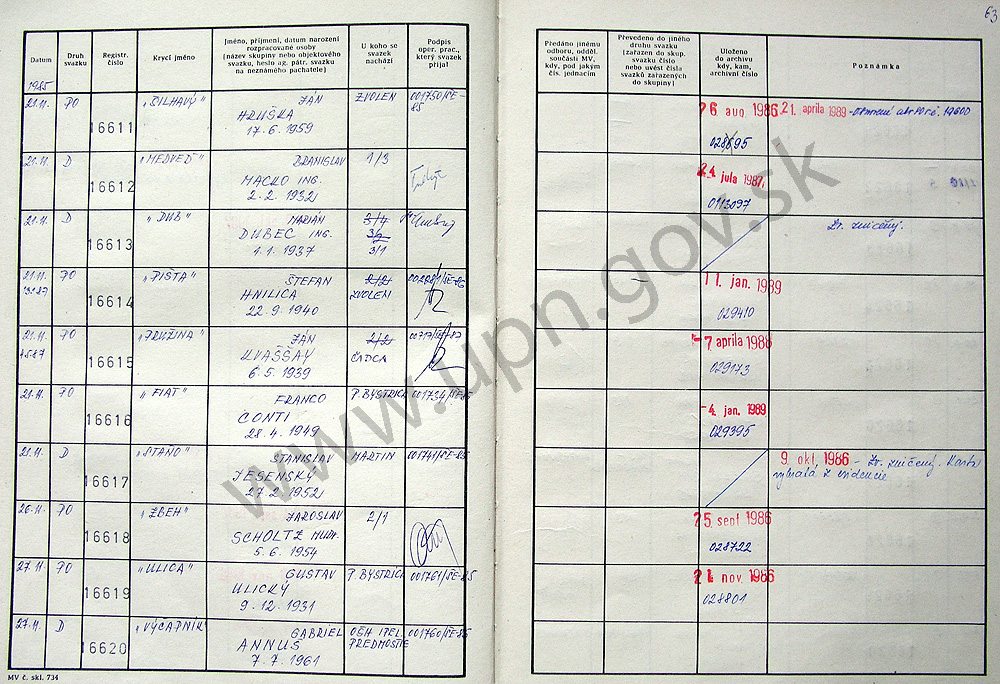 63
Datum
Druh svazku
Registr. číslo
Krycí jméno
Jméno, příjmení, datum narození
rozpracované osoby
(název skupiny nebo objektového
svazku, heslo ag. pátr. svazku
na neznámého pachatele)
U koho se
svazek
nachází
Podpis
oper. prac.,
který svazek
přijal
Předáno jinému
odboru, odděl.
součásti MV,
kdy, pod jakým
čís. jednacím
Převedeno do jiného
druhu svazku
(zařazen do skup.
svazku číslo
nebo uvést čísla
svazků zařazených
do skupiny)
Uloženo
do archivu
kdy, kam,
archivní číslo
Poznámka
1985
21.11. PO 16611 „ŠILHAVÝ" JÁN ZVOLEN 001750/SE-85
HRUŠKA
17. 6. 1959
26 aug. 1986
028695
21. apríla 1989
21.11. D 16612 „MEDVEĎ" BRANISLAV 1/3
MACKO ING.
2. 2. 1932
24 júla 1987
0113097
21.11. D 16613 „DUB" MARIÁN 3/4
DUBEC ING. 3/2
1. 1. 1937 3/1
Zv. zničený.
21.11. PO 16614 „PIŠTA" ŠTEFAN 2/2
HNILICA ZVOLEN
22. 9. 1940
11. jan. 1989
029410
21.11. PO 16615 „PRUŽINA" JÁN 2/2
UVAŠŠAY ČADCA
6. 5. 1939
-7 apríla 1988
029173
21.11. PO 16616 „FIAT" FRANCO P. BYSTRICA 001734/SE-85
CONTI
28. 4. 1949
-4. jan. 1989
029395
21.11. D 16617 „STAŇO" STANISLAV MARTIN 001741/SE-85
JESENSKÝ
27. 2. 1952
9. okt. 1986 - Zv. zničený. Karta
vybratá z evidencie
26.11. PO 16618 „ŽBEH" JAROSLAV 2/1
SCHOLTZ MUDr.
5. 6. 1954
25 sept 1986
028722
27.11. PO 16619 „ULICA" GUSTAV P. BYSTRICA 001761/SE-85
ULICKÝ
9. 12. 1931
21. nov. 1986
028801
27.11. D 16620 „VÝČAPNÍK" GABRIEL OŠH IPEL. 001760/SE-85
ANNUS PREDMOSTIE
7. 7. 1961
MV č. skl. 734
www.upn.gov.sk